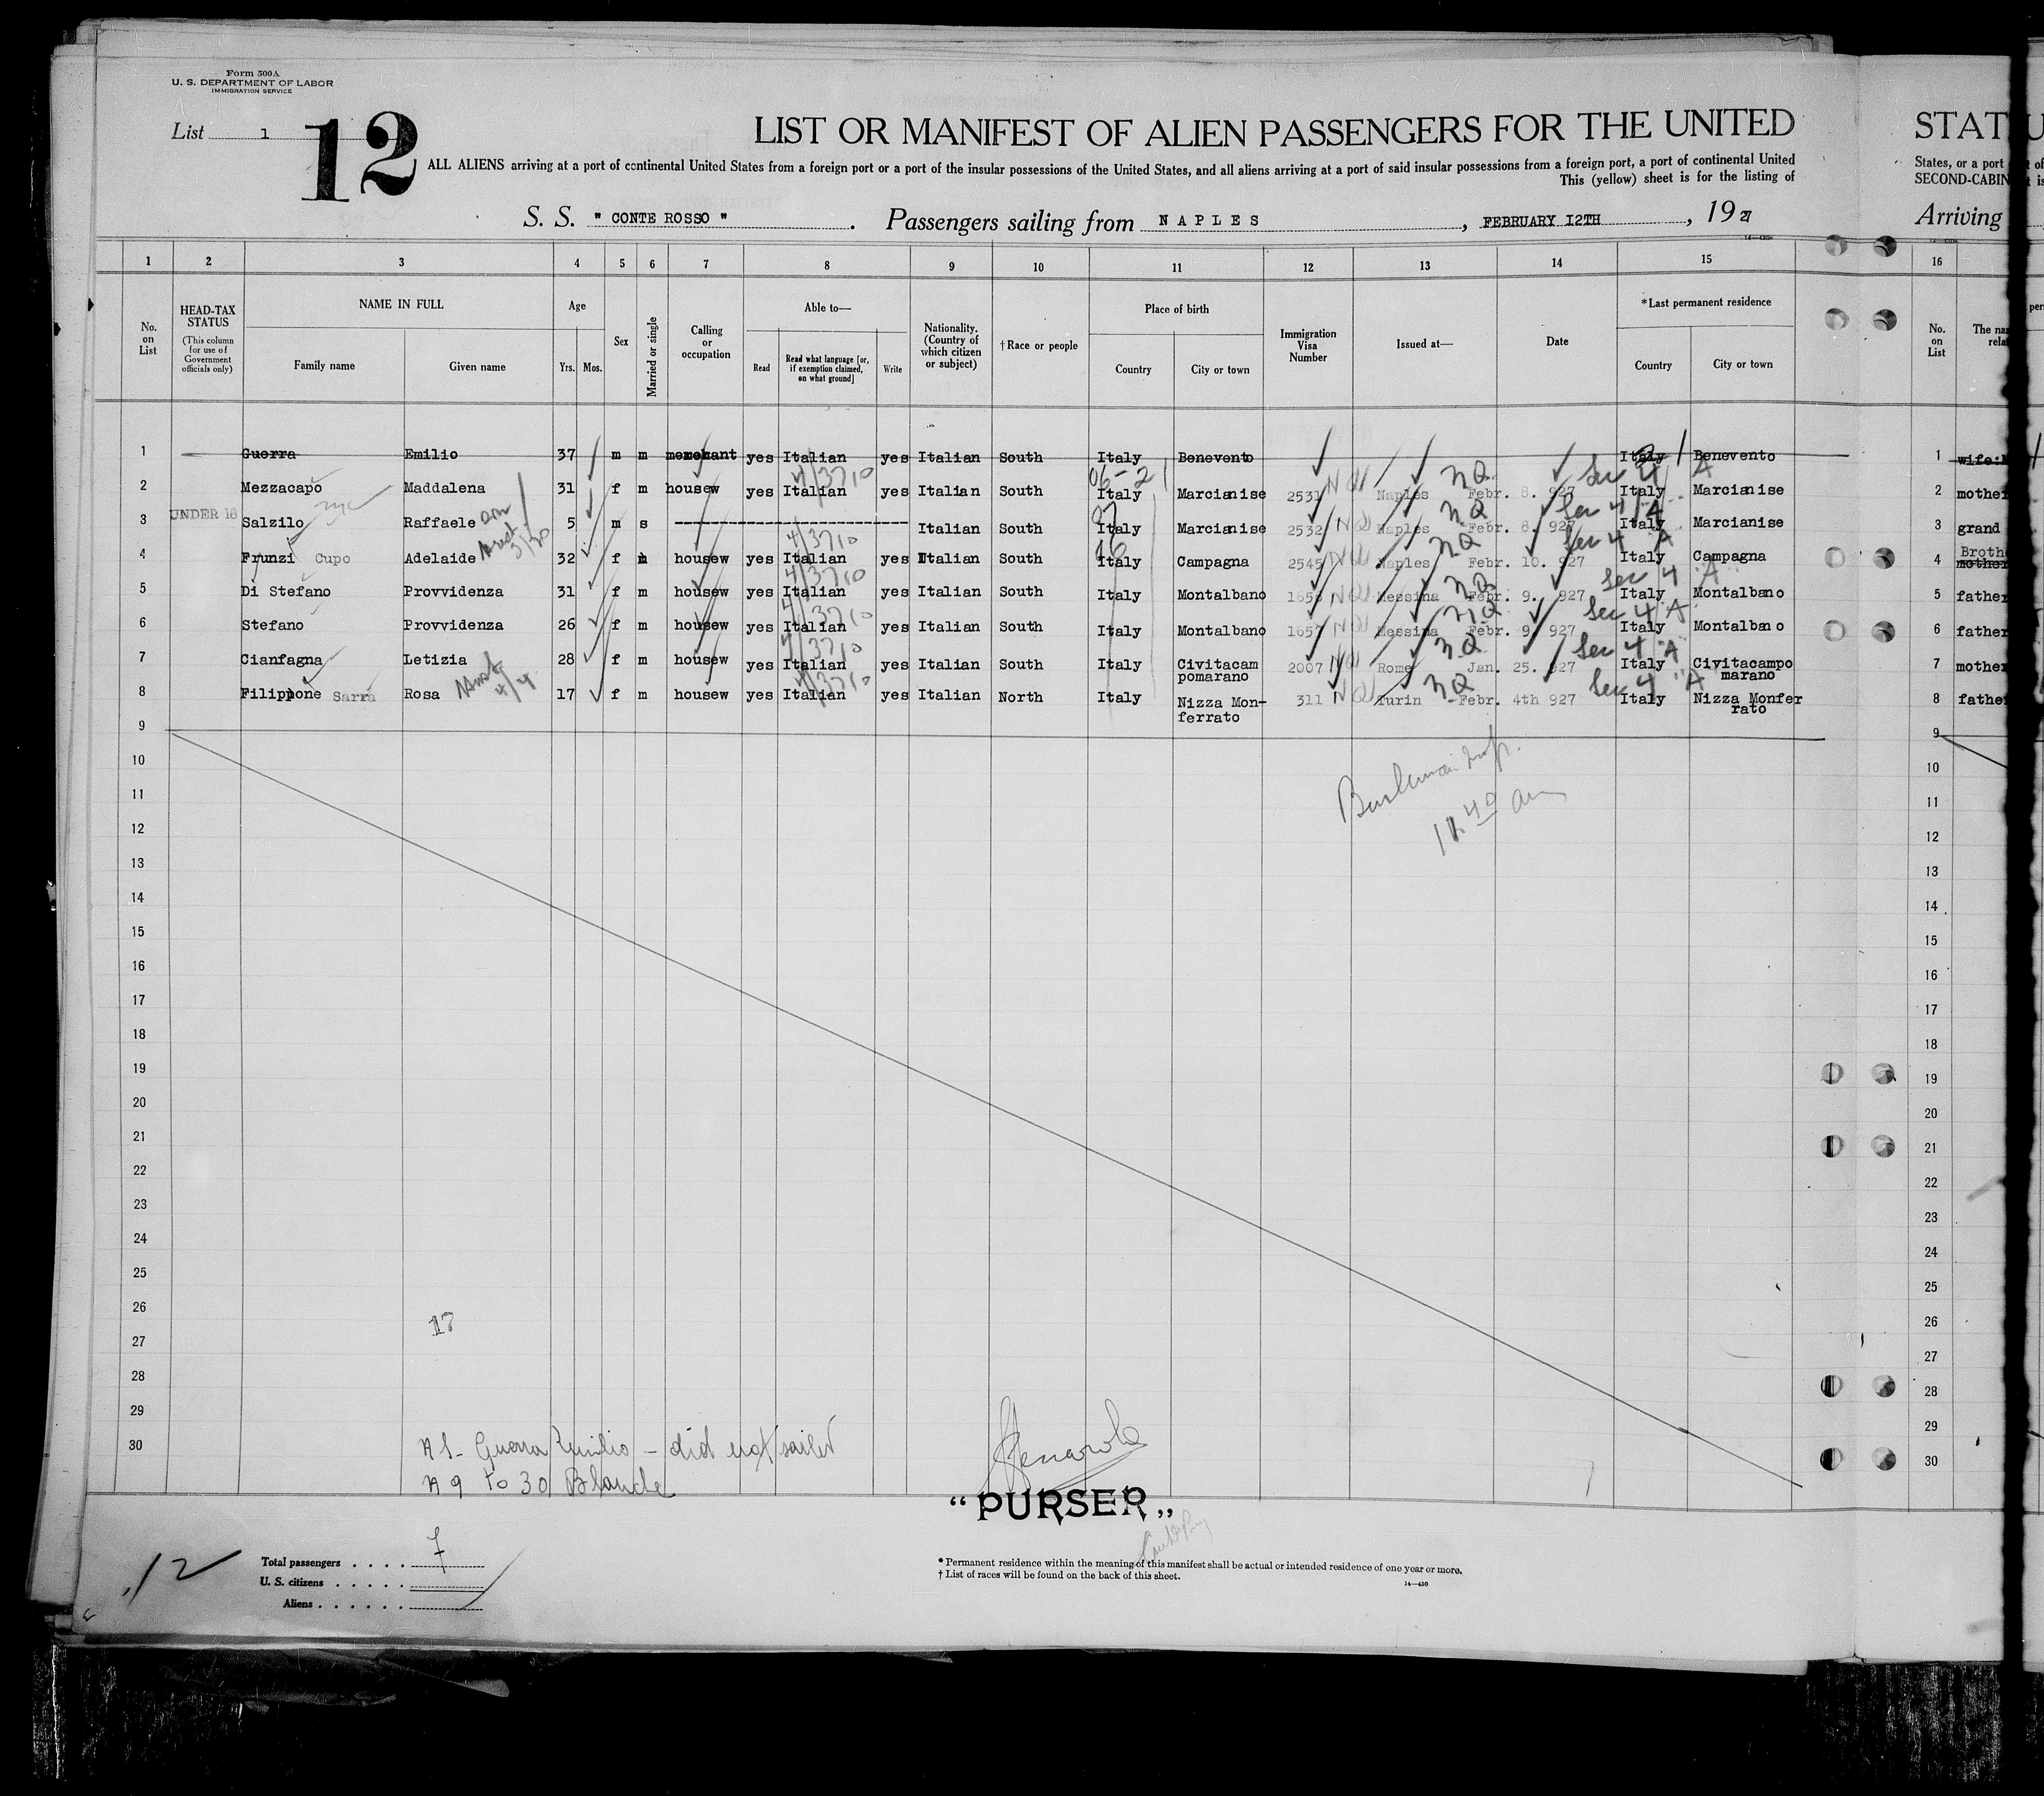 Form 500A
U. S. DEPARTMENT OF LABOR
IMMIGRATION SERVICE
List 1
12
LIST OR MANIFEST OF ALIEN PASSENGERS FOR THE UNITED
STAT
ALL ALIENS arriving at a port of continental United States from a foreign port or a port of the insular possessions of the United States, and all aliens arriving at a port of said insular possessions from a foreign port, a port of continental United
States, or a port
This (yellow) sheet is for the listing of
SECOND-CABIN
S. S. " CONTE ROSSO " . Passengers sailing from NAPLES , FEBRUARY 12TH , 1927
Arriving
1 2 3 4 5 6 7 8 9 10 11 12 13 14 15 16
No. on List
HEAD-TAX STATUS (This column for use of Government officials only)
NAME IN FULL
Family name Given name
Age
Yrs. Mos.
Sex
Married or single
Calling or occupation
Able to—
Read Read what language [or, if exemption claimed, on what ground] Write
Nationality. (Country of which citizen or subject)
†Race or people
Place of birth
Country City or town
Immigration Visa Number
Issued at—
Date
*Last permanent residence
Country City or town
No. on List
1 Guerra Emilio 37 m m merchant yes Italian yes Italian South Italy Benevento Italy Benevento 1 wife:
2 Mezzacapo Maddalena 31 f m housew yes Italian yes Italian South Italy Marcianise 2531 Naples Febr. 8. 927 Italy Marcianise 2 mother
UNDER 16
3 Salzilo Raffaele 5 m s Italian South Italy Marcianise 2532 Naples Febr. 8. 927 Italy Marcianise 3 grand
4 Frunzi Cupo Adelaide 32 f m housew yes Italian yes Italian South Italy Campagna 2545 Naples Febr. 10. 927 Italy Campagna 4 Brothe mother
5 Di Stefano Provvidenza 31 f m housew yes Italian yes Italian South Italy Montalbano 1658 Messina Febr. 9. 927 Italy Montalbano 5 father
6 Stefano Provvidenza 26 f m housew yes Italian yes Italian South Italy Montalbano 1657 Messina Febr. 9. 927 Italy Montalbano 6 father
7 Cianfagna Letizia 28 f m housew yes Italian yes Italian South Italy Civitacam pomarano 2007 Rome Jan. 25. 927 Italy Civitacampo marano 7 mother
8 Filippone Sarra Rosa 17 f m housew yes Italian yes Italian North Italy Nizza Mon- ferrato 311 Turin Febr. 4th 927 Italy Nizza Monfer rato 8 father
4/3710
NQ Sec 4 A
06-2
9 9
10 10
11 11
12 12
13 13
14 14
15 15
16 16
17 17
18 18
19 19
20 20
21 21
22 22
23 23
24 24
25 25
26 26
17
27 27
28 28
29 29
30 30
N 1- Guerra Emilio - did not sailed
N 9 to 30 Blancke
"PURSER"
12
Total passengers . . . . 7
U. S. citizens . . . . .
Aliens . . . . . .
* Permanent residence within the meaning of this manifest shall be actual or intended residence of one year or more.
† List of races will be found on the back of this sheet.
14—430